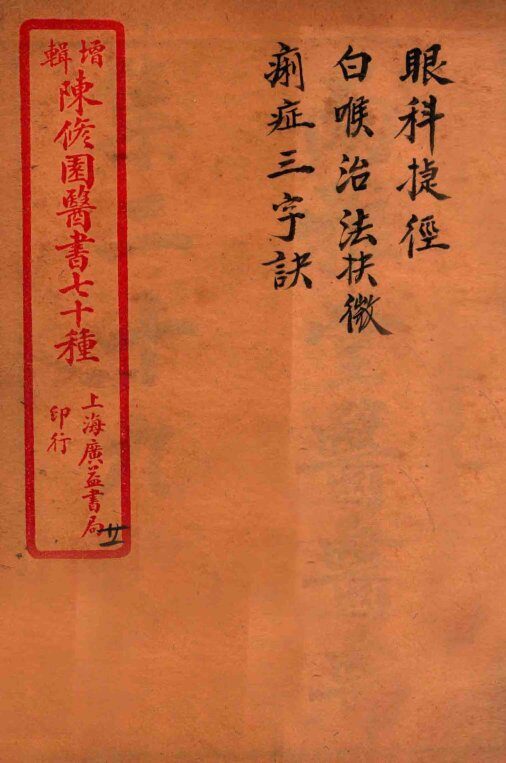 眼科捷徑
白喉治法扶微
痢症三字訣
增輯
陳修園醫書七十種
上海廣益書局
印行
廿